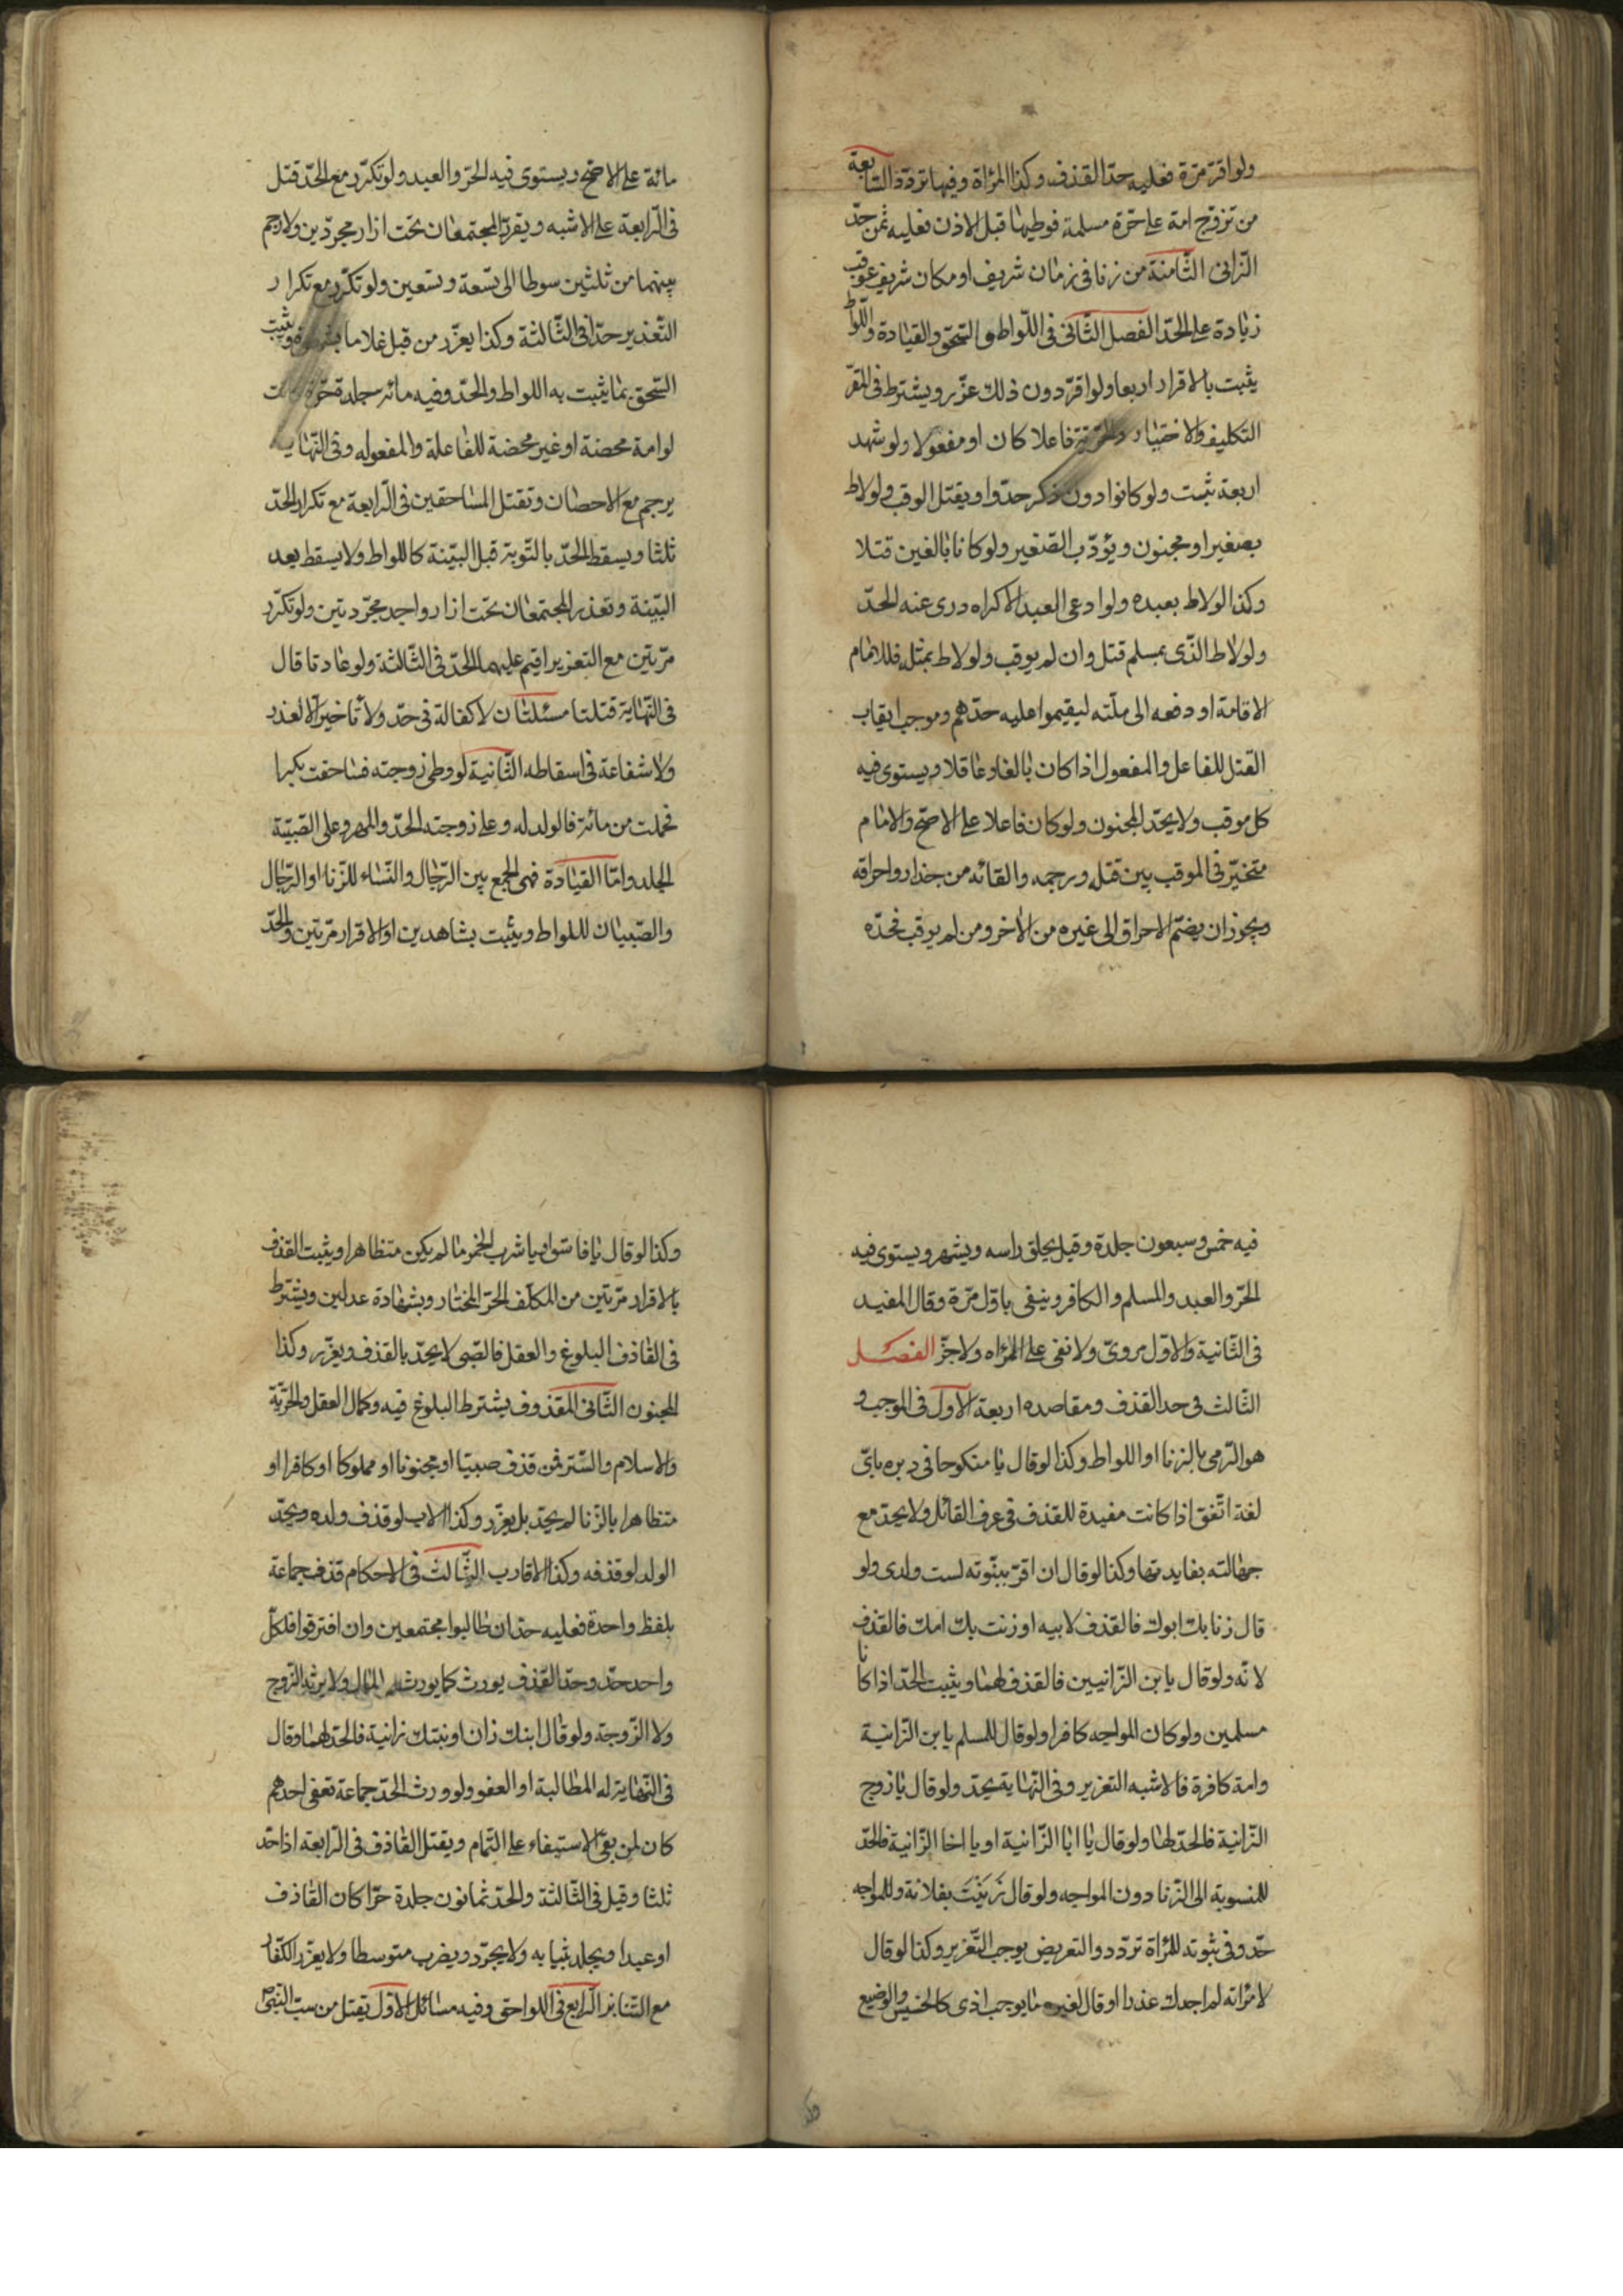 ولو اقر مرّة فعليه حدّ القذف وكذا المراة وفيها تردّد السّابعة
من تزوّج امة على حرّة مسلمة فوطيها قبل الاذن فعليه ثمن حدّ
الزّانى الثّامنة من زنا فى زمان شريف او مكان شريف عوقب
زيادة على الحدّ الفصل الثّانى فى اللّواط والسّحق والقيادة واللّواط
يثبت بالاقرار اربعا ولو اقرّ دون ذلك عزّر ويشترط فى المقرّ
التكليف والاختيار والحرّيّة فاعلا كان او مفعولا ولو شهد
اربعة ثبت ولو كانوا دون ذكر حدّوا ويقتل الموقب ولو لاط
بصغير او مجنون ويؤدّب الصّغير ولو كانا بالغين قتلا
وكذا لو لاط بعبده ولو ادعى العبد الاكراه درى عنه الحدّ
ولو لاط الذّمى بمسلم قتل وان لم يوقب ولو لاط بمثله فللامام
الاقامة او دفعه الى ملّته ليقيموا عليه حدّهم وموجب ايقاب
القتل للفاعل والمفعول اذا كان بالغا وعاقلا ويستوى فيه
كل موقب ولا يحدّ المجنون ولو كان فاعلا على الاصحّ والامام
متخيّر فى الموقب بين قتله ورجمه والقائه من جدار واحراقه
ويجوز ان يضمّ الاحراق الى غيره من الاخر ومن لم يوقب فحدّه
مائة على الاصحّ ويستوى فيه الحرّ والعبد ولو تكرّر مع الحدّ قتل
فى الرّابعة على الاشبه ويعزّر المجتمعان تحت ازار مجرّدين ولا رحم
بينهما من ثلثين سوطا الى تسعة وتسعين ولو تكرّر مع تكرار
التّعذير حدّا فى الثّالثة وكذا يعزّر من قبل غلاما بشهوة ويثبت
السّحق بما يثبت به اللواط والحدّ وفيه مائة جلدة حرّة كانت
او امة محصنة او غير محصنة للفاعلة والمفعوله وفى النّهاية
يرجم مع الاحصان وتقتل المساحقين فى الرّابعة مع تكرار الحدّ
ثلثا ويسقط الحدّ بالتّوبة قبل البيّنة كاللواط ولا يسقط بعد
البيّنة وتعذر المجتمعان تحت ازار واحد مجرّدتين ولو تكرّر
مرّتين مع التعزير اقيم عليهما الحدّ فى الثّالثة ولو عادتا قال
فى النّهاية قتلتا مسئلتان لا كفالة فى حدّ ولا تاخير الّا لعذر
ولا شفاعة فى اسقاطه الثّانية لو وطى زوجته فساحقت بكرا
فحملت من مائه فالولد له وعلى زوجته الحدّ والمهر وعلى الصّبيّة
الجلد وامّا القيادة فهى الجمع بين الرّجال والنّساء للزّنا او الرّجال
والصّبيان لللواط ويثبت بشاهدين او الاقرار مرّتين والحدّ
فيه خمس وسبعون جلدة وقيل يحلق راسه ويشهر ويستوى فيه
الحرّ والعبد والمسلم والكافر وينفى باوّل مرّة وقال المفيد
فى الثّانية والاوّل مروىّ ولا نفى على المراه ولا جزّ الفصل
الثّالث فى حد القذف ومقاصده اربعة الاول فى الموجب و
هو الرّمى بالزنا او اللواط وكذا لو قال يا منكوحا فى دبره باىّ
لغة اتّفق اذا كانت مفيدة للقذف فى عرف القائل ولا يحدّ مع
جهالته بفايدتها وكذا لو قال ان اقرّ ببنّوته لست ولدى ولو
قال زنا بك ابوك فالقذف لابيه او زنت بك امك فالقذف
لامّه ولو قال يا بن الزّانيين فالقذف لهما ويثبت الحدّ اذا كانا
مسلمين ولو كان المواجه كافرا ولو قال للمسلم يا بن الزّانية
وامه كافرة فالاشبه التعزير وفى النّهاية يحدّ ولو قال يا زوج
الزّانية فالحدّ لها ولو قال يا ابا الزّانية او يا اخا الزّانية فالحدّ
للمنسوبة الى الزّنا دون المواجه ولو قال زَنَيْتَ بفلانة وللمواجه
حدّ وفى ثبوته للمراة تردّد والتعريض يوجب التّعزير وكذا لو قال
لامراته لم اجدك عذرا او قال لغيره ما يوجب اذى كالخسيس والوضيع
وكذا لو قال يا فاسق او يا شارب الخمر ما لم يكن متظاهرا ويثبت القذف
بالاقرار مرّتين من المكلّف الحرّ المختار وبشهادة عدلين ويشترط
فى القاذف البلوغ والعقل فالصّبى لا يحدّ بالقذف ويعزّر وكذا
المجنون الثّانى المقذوف يشترط البلوغ فيه وكمال العقل والحرّيّة
والاسلام والسّتر فمن قذف صبيّا او مجنونا او مملوكا او كافرا او
متظاهرا بالزّنا لم يحدّ بل يعزّر وكذا الاب لو قذف ولده ويحدّ
الولد لو قذفه وكذا الاقارب الثّالث فى الاحكام قذف جماعة
بلفظ واحدة فعليه حدّ ان طالبوا مجتمعين وان افترقوا فلكلّ
واحد حدّ وحدّ القذف يورث كما يورث المال ولا يرثه الزّوج
ولا الزّوجة ولو قال ابنك زان او بنتك زانية فالحدّ لهما وقال
فى النّهاية له المطالبة او العفو ولو ورث الحدّ جماعة فعفى احدهم
كان لمن بقى الاستيفاء على التّمام ويقتل القاذف فى الرّابعة اذا حدّ
ثلثا وقيل فى الثّالثة والحدّ ثمانون جلدة حرّا كان القاذف
او عبدا ويجلد بثيابه ولا يجرّد ويضرب متوسطا ولا يعزّر الكفّار
مع التّنابز الرّابع فى اللواحق وفيه مسائل الاوّل يقتل من سبّ النّبىّ